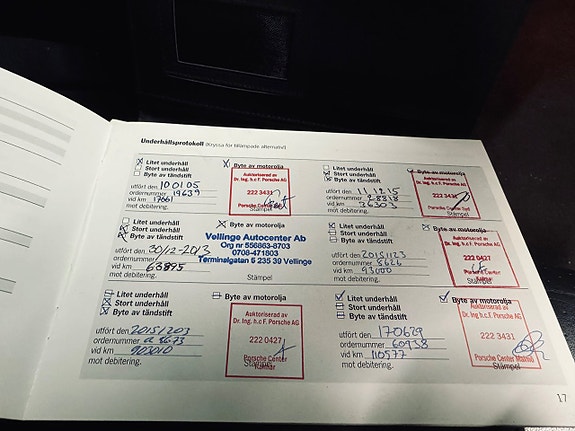 Underhållsprotokoll (Kryssa för tillämpade alternativ)
Litet underhåll
Stort underhåll
Byte av tändstift
X Byte av motorolja
utfört den 10 01 05
ordernummer 19639
vid km 17661
mot debitering.
Auktoriserad av
Dr. Ing. h.c.F. Porsche AG
222 3431
Porsche Center
Stämpel
Litet underhåll
Stort underhåll
Byte av tändstift
Byte av motorolja
utfört den 11 12 15
ordernummer 28818
vid km 36303
mot debitering.
Auktoriserad av
Dr. Ing. h.c.F. Porsche AG
222 3431
Porsche Center Syd
Stämpel
Litet underhåll
Stort underhåll
Byte av tändstift
X Byte av motorolja
utfört den 30/12-2013
ordernummer
vid km 63895
mot debitering.
Vellinge Autocenter Ab
Org nr 556863-8703
0708-471803
Terminalgatan 5 235 39 Vellinge
Stämpel
Litet underhåll
Stort underhåll
Byte av tändstift
X Byte av motorolja
utfört den 20151123
ordernummer 8666
vid km 93000
mot debitering.
Auktoriserad av
Dr. Ing. h.c.F. Porsche AG
222 0427
Porsche Center
Kalmar
Stämpel
Litet underhåll
X Stort underhåll
Byte av tändstift
Byte av motorolja
utfört den 20151203
ordernummer 8673
vid km 903010
mot debitering.
Auktoriserad av
Dr. Ing. h.c.F. Porsche AG
222 0427
Porsche Center
Kalmar
Stämpel
Litet underhåll
Stort underhåll
Byte av tändstift
Byte av motorolja
utfört den 170629
ordernummer 60938
vid km 110577
mot debitering.
Auktoriserad av
Dr. Ing. h.c.F. Porsche AG
222 3431
Porsche Center Malmö
Stämpel
17